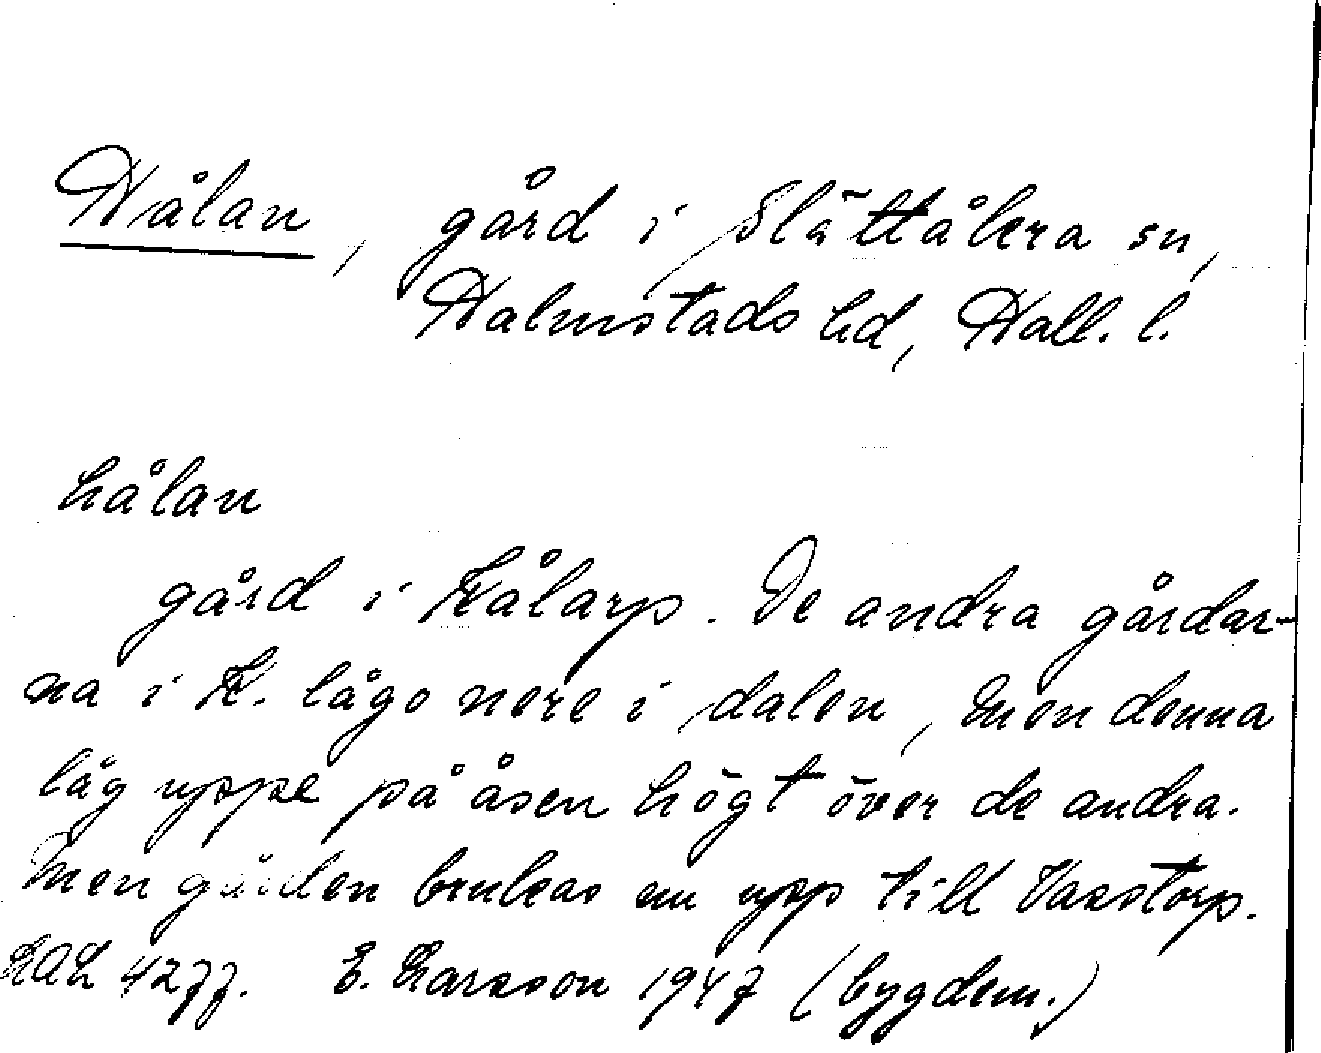 Hålan, gård i Slättåkra sn,
Halmstads hd, Hall. l.
hålan
gård i Kålarp. De andra gårdar-
na i K. lågo nere i dalen, men denna
låg uppe på åsen högt över de andra.
Men gården brukas nu upp till Vaastorp.
LAL 4277. E. Larsson 1947 (bygdem.)